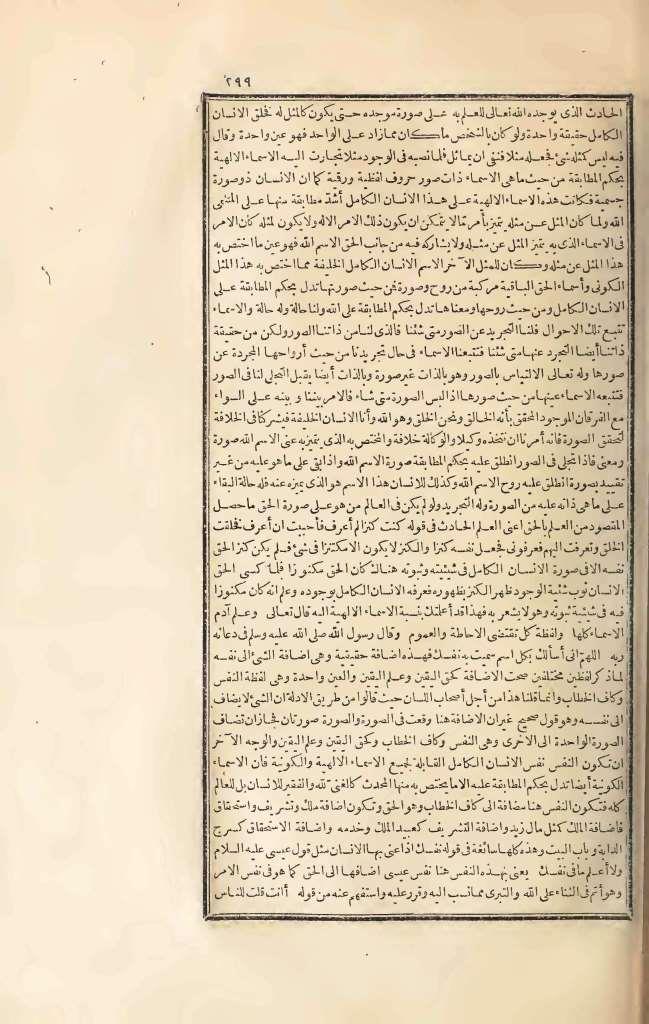 ٢٩٩
الحادث الذى يوجده الله تعالى للعلم به على صورة موجده حتى يكون كالمثل له فخلق الانسان
الكامل حقيقة واحدة ولو كان بالشخص ما كان مما زاد على الواحد فهو عين واحدة وقال
فيه ليس كمثله شئ فجعله مثلا فنفى ان يماثل فلما نصبه فى الوجود مثلا تجارت اليه الاسماء الالهية
بحكم المطابقة من حيث ما هى الاسماء ذات صور حروف لفظية ورقمية كما ان الانسان ذو صورة
جسمية فكانت هذه الاسماء الالهية على هذا الانسان الكامل أشدّ مطابقة منها على المسمى
الله ولما كان المثل عن مثله يتميز بأمر ما لا يتمكن ان يكون ذلك الامر الا له ولا يكون لمثله كان الامر
فى الاسماء الذى به يتميز المثل عن مثله ولا يشاركه فيه من جانب الحق الاسم الله فهو عين ما اختص به
هذا المثل عن مثله وكان للمثل الآخر الاسم الانسان الكامل الخليفة مما اختص به هذا المثل
الكونى وأسماء الحق الباقية مركبة من روح وصورة فمن حيث صورتها تدل بحكم المطابقة على
الانسان الكامل ومن حيث روحها ومعناها تدل بحكم المطابقة على الله ولنا حالة وله حالة والاسماء
تتبع تلك الاحوال فلنا التجريد عن الصور متى شئنا فالذى لنا من ذاتنا الصور ولكن من حقيقة
ذاتنا أيضا التجرد عنها متى شئنا فتتبعنا الاسماء فى حال تجريدنا من حيث أرواحها المجردة عن
صورها وله تعالى الالتباس بالصور وهو بالذات غير صورة وبالذات أيضا يقبل التجلى لنا فى الصور
فتتبعه الاسماء عينها من حيث صورها اذا لبس الصورة متى شاء فالامر بيننا وبينه على السواء
مع الفرقان الموجود المحقق بأنه الخالق ونحن الخلق وهو الله وأنا الانسان الخليفة فيشركنا فى الخلافة
لتحقق الصورة فانه أمرنا ان نتخذه وكيلا والوكالة خلافة والمختص به الذى يتميز به عنى الاسم الله صورة
ومعنى فاذا تجلى فى الصور انطلق عليه بحكم المطابقة صورة الاسم الله واذا بقى على ما هو عليه من غير
تقييد بصورة انطلق عليه روح الاسم الله وكذلك للانسان هذا الاسم هو الذى يميزه عنه فله حالة البقاء
على ما هى ذاته عليه من الصورة وله التجريد ولو لم يكن فى العالم من هو على صورة الحق ما حصل
المقصود من العلم بالحق اعنى العلم الحادث فى قوله كنت كنزا لم أعرف فأحببت ان أعرف فخلقت
الخلق وتعرفت اليهم فعرفونى فجعل نفسه كنزا والكنز لا يكون الا مكتنزا فى شئ فلم يكن كنز الحق
نفسه الا فى صورة الانسان الكامل فى شيئيته وثبوته هنالك كان الحق مكنوزا فلما كسى الحق
الانسان ثوب شيئية الوجود ظهر الكنز بظهوره فعرفه الانسان الكامل بوجوده وعلم انه كان مكنوزا
فيه فى شيئية ثبوته وهو لا يشعر به فهذا قد أعلمتك بنسبة الاسماء الالهية اليه قال تعالى وعلم آدم
الاسماء كلها ولفظة كل تقتضى الاحاطة والعموم وقال رسول الله صلى الله عليه وسلم فى دعائه
ربه اللهم انى أسألك بكل اسم سميت به نفسك فهذه اضافة حقيقية وهى اضافة الشئ الى نفسه
لما ذكر لفظين مختلفين صحت الاضافة كحق اليقين وعلم اليقين والعين واحدة وهى لفظة النفس
وكاف الخطاب وانما قلنا هذا من أجل أصحاب اللسان حيث قالوا من طريق الادلة ان الشئ لا يضاف
الى نفسه وهو قول صحيح غير ان الاضافة هنا وقعت فى الصورة والصورة صورتان فجاز ان تضاف
الصورة الواحدة الى الاخرى وهى النفس وكاف الخطاب وكحق اليقين وعلم اليقين والوجه الآخر
ان تكون النفس نفس الانسان الكامل القابلة لجميع الاسماء الالهية والكونية فان الاسماء
الكونية أيضا تدل بحكم المطابقة عليه الا ما يختص به منها المحدث كالغنى لله والفقير للانسان بل للعالم
كله فتكون النفس هنا مضافة الى كاف الخطاب وهو الحق وتكون اضافة ملك وتشريف واستحقاق
فاضافة الملك كمثل مال زيد واضافة التشريف كعبيد الملك وخدمه واضافة الاستحقاق كسرج
الدابة وباب البيت وهذه كلها سائغة فى قوله نفسك اذا عنى بها الانسان مثل قول عيسى عليه السلام
ولا أعلم ما فى نفسك يعنى بهذه النفس هنا نفس عيسى اضافها الى الحق كما هو فى نفس الامر
وهو أتم فى الثناء على الله والتبرى مما نسب اليه وقرر عليه واستفهم عنه من قوله أأنت قلت للناس